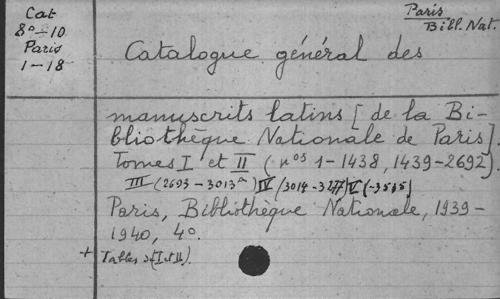 Cat
8° - 10
Paris
1 - 18
Paris
Bibl. Nat.
Catalogue général des
manuscrits latins [de la Bi-
bliothèque Nationale de Paris].
Tomes I et II (nos 1-1438, 1439-2692)
III (2693 - 3013A) IV (3014 - 3277) V (-3535)
Paris, Bibliothèque Nationale, 1939-
1940, 4°.
+ Tables (I et II).